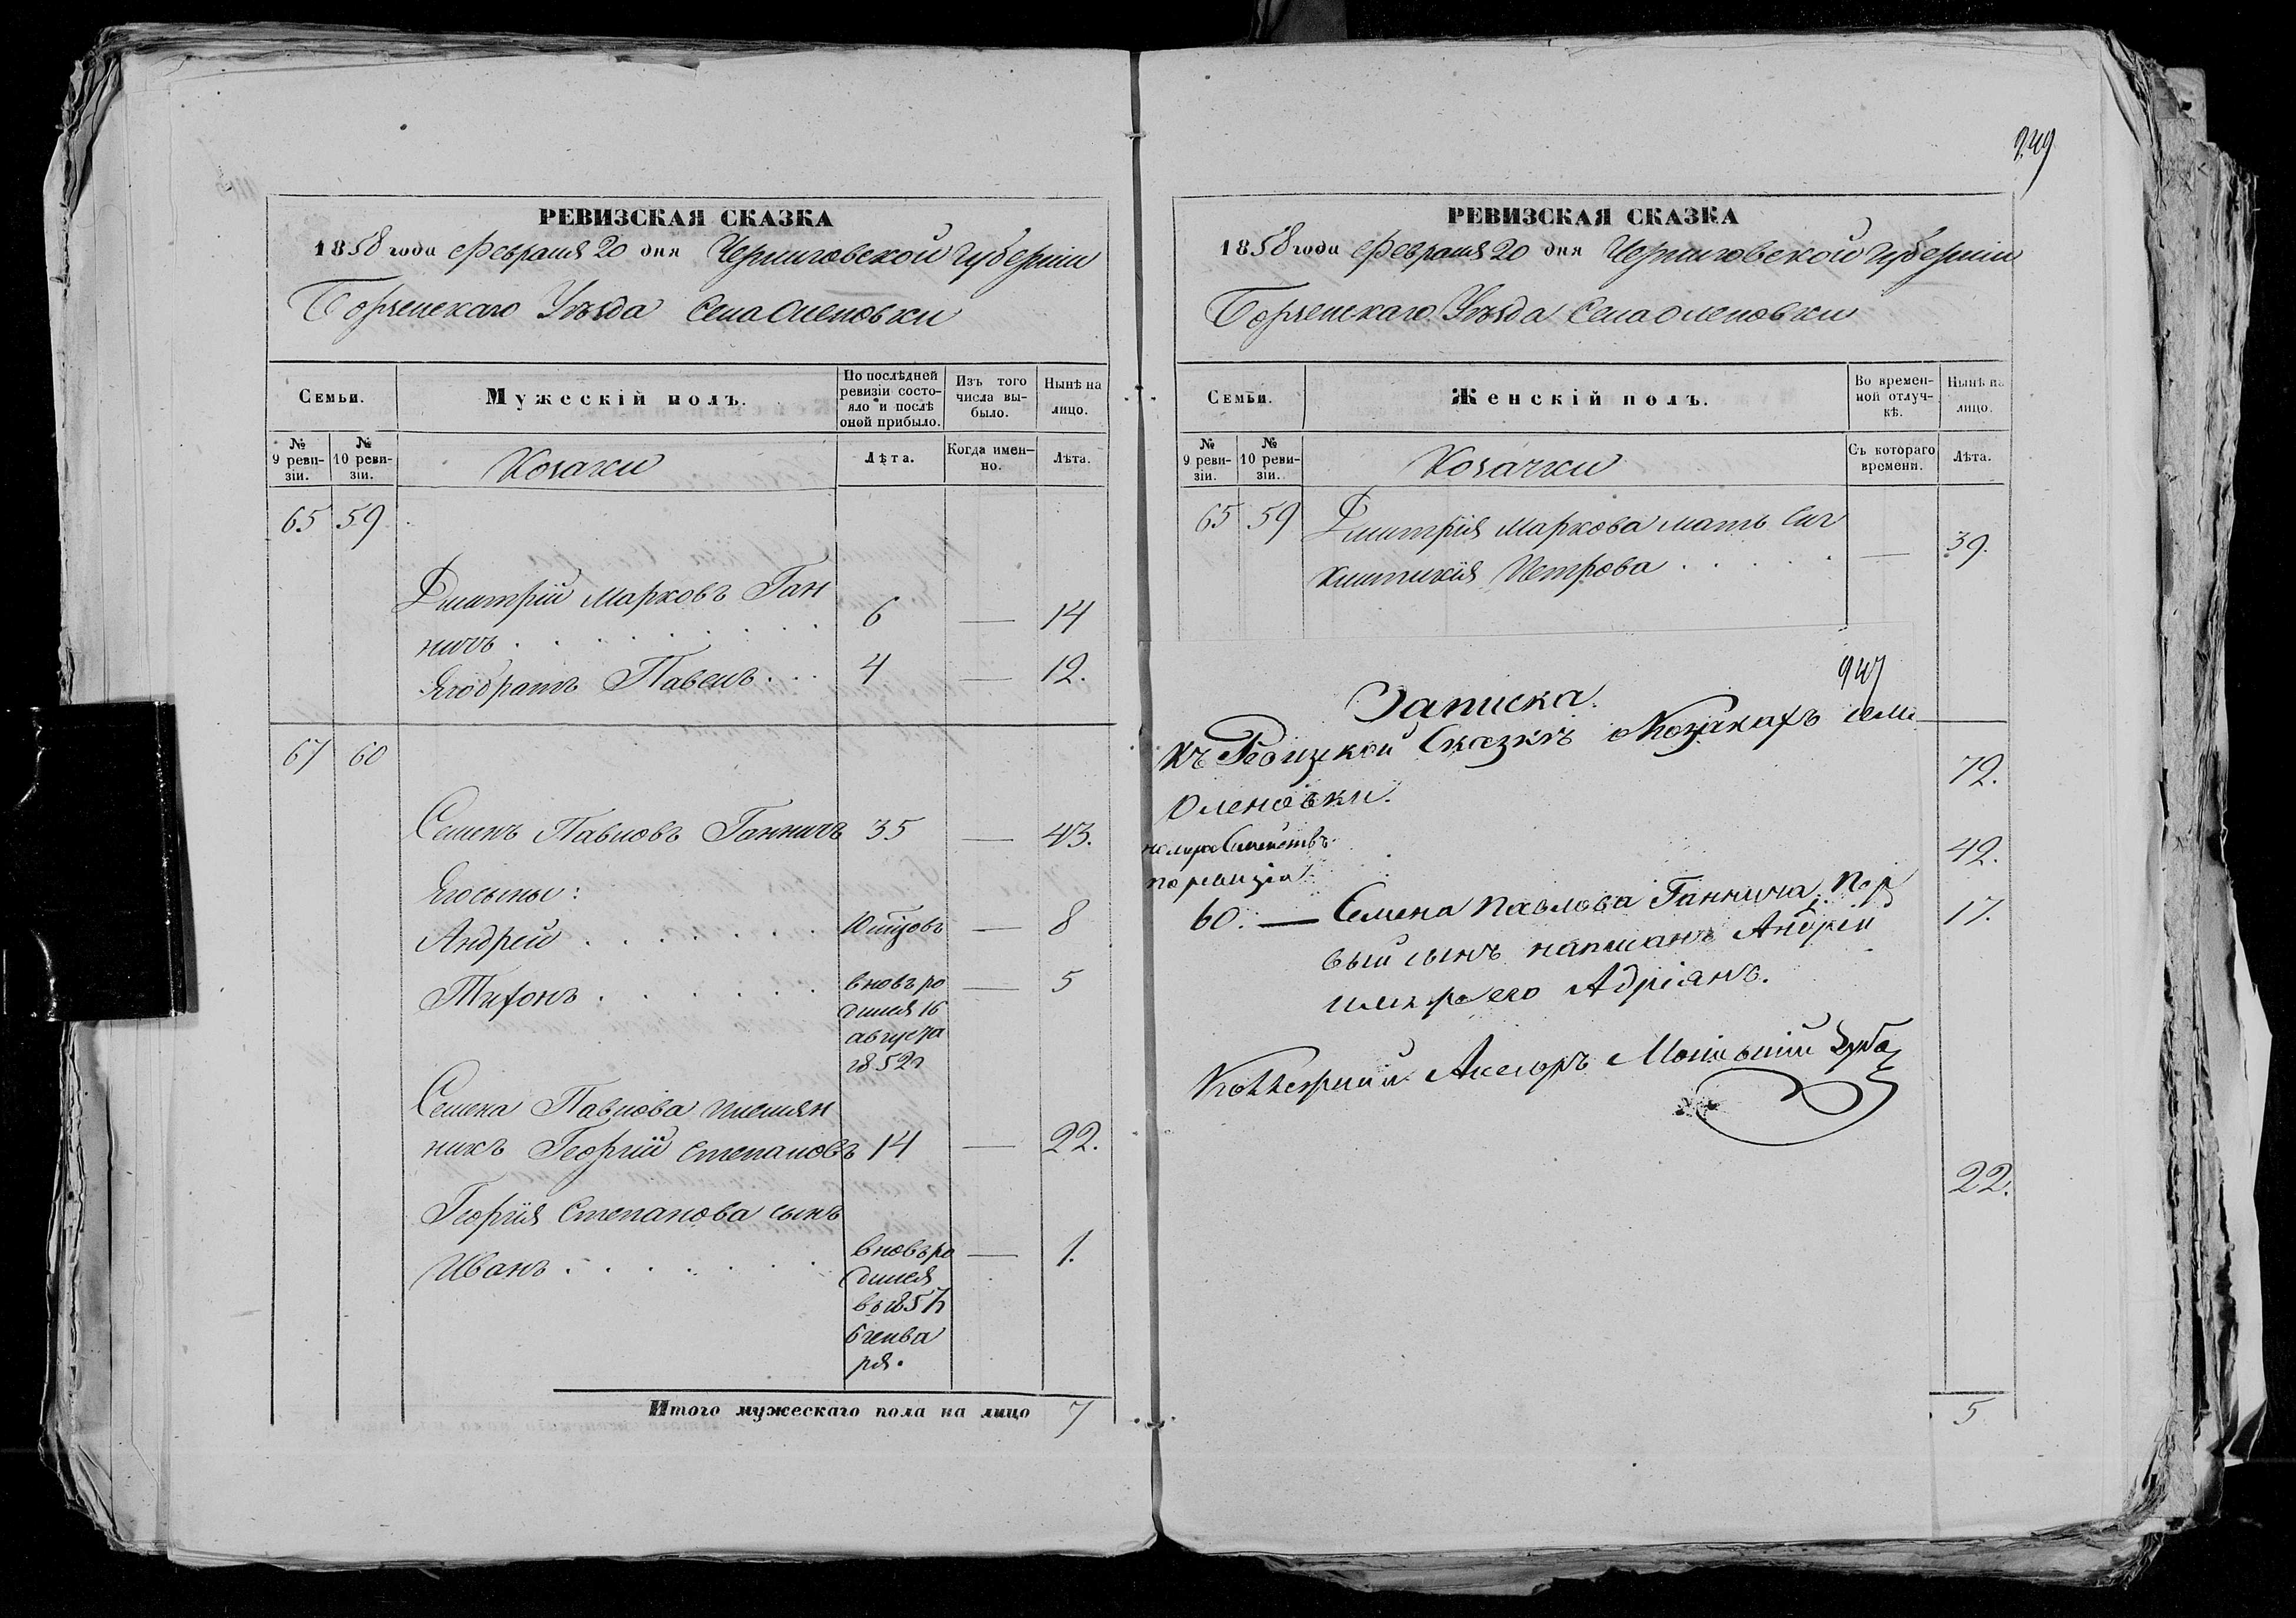 249
РЕВИЗСКАЯ СКАЗКА
1858 года Февраля 20 дня Черниговской Губерніи
Борзенскаго Уѣзда Села Оленовки
Семьи.
Мужескій полъ.
По послѣдней ревизіи состояло и послѣ оной прибыло.
Изъ того числа выбыло.
Нынѣ на лицо.
№ 9 ревизіи.
№ 10 ревизіи.
Козаки
Лѣта.
Когда именно.
Лѣта.
65 59
Дмитрій Марковъ Ган
ничъ . . . . . . . . 6 — 14
Егобратъ Павелъ . . . 4 — 12.
67 60
Семенъ Павловъ Ганничъ 35 — 43.
Егосыны:
Андрей . . . . . . . — 8
Тихонъ . . . . . . вновь ро — 5
дился 16
августа
1852г
Семена Павлова племян
никъ Георгій Степановъ 14 — 22.
Георгія Степанова сынъ
Иванъ . . . . . . . вновь ро — 1.
дился
въ 1857
6 генва
ря.
Итого мужескаго пола на лицо 7
РЕВИЗСКАЯ СКАЗКА
1858 года Февраля 20 дня Черниговской Губерніи
Борзенскаго Уѣзда Села Оленовки
Семьи.
Женскій полъ.
Во временной отлучкѣ.
Нынѣ на лицо.
№ 9 ревизіи.
№ 10 ревизіи.
Козачки
Съ котораго времени.
Лѣта.
65 59 Дмитрія Маркова мать Син
клитикія Петрова . . . . . — 39.
947
Записка.
къ Ревизкой Сказкѣ о Козакахъ села
Оленовки.
72.
номера Семействъ
по ревизіи
42.
60. — Семена Павлова Ганнича, пер
17.
вый сынъ написанъ Андрій
имя его Адріанъ.
Коллежскій Асессоръ
22.
5